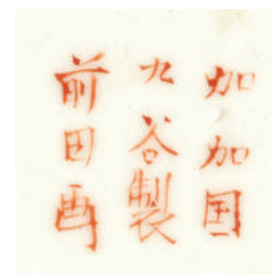 加加国
九谷製
前田画